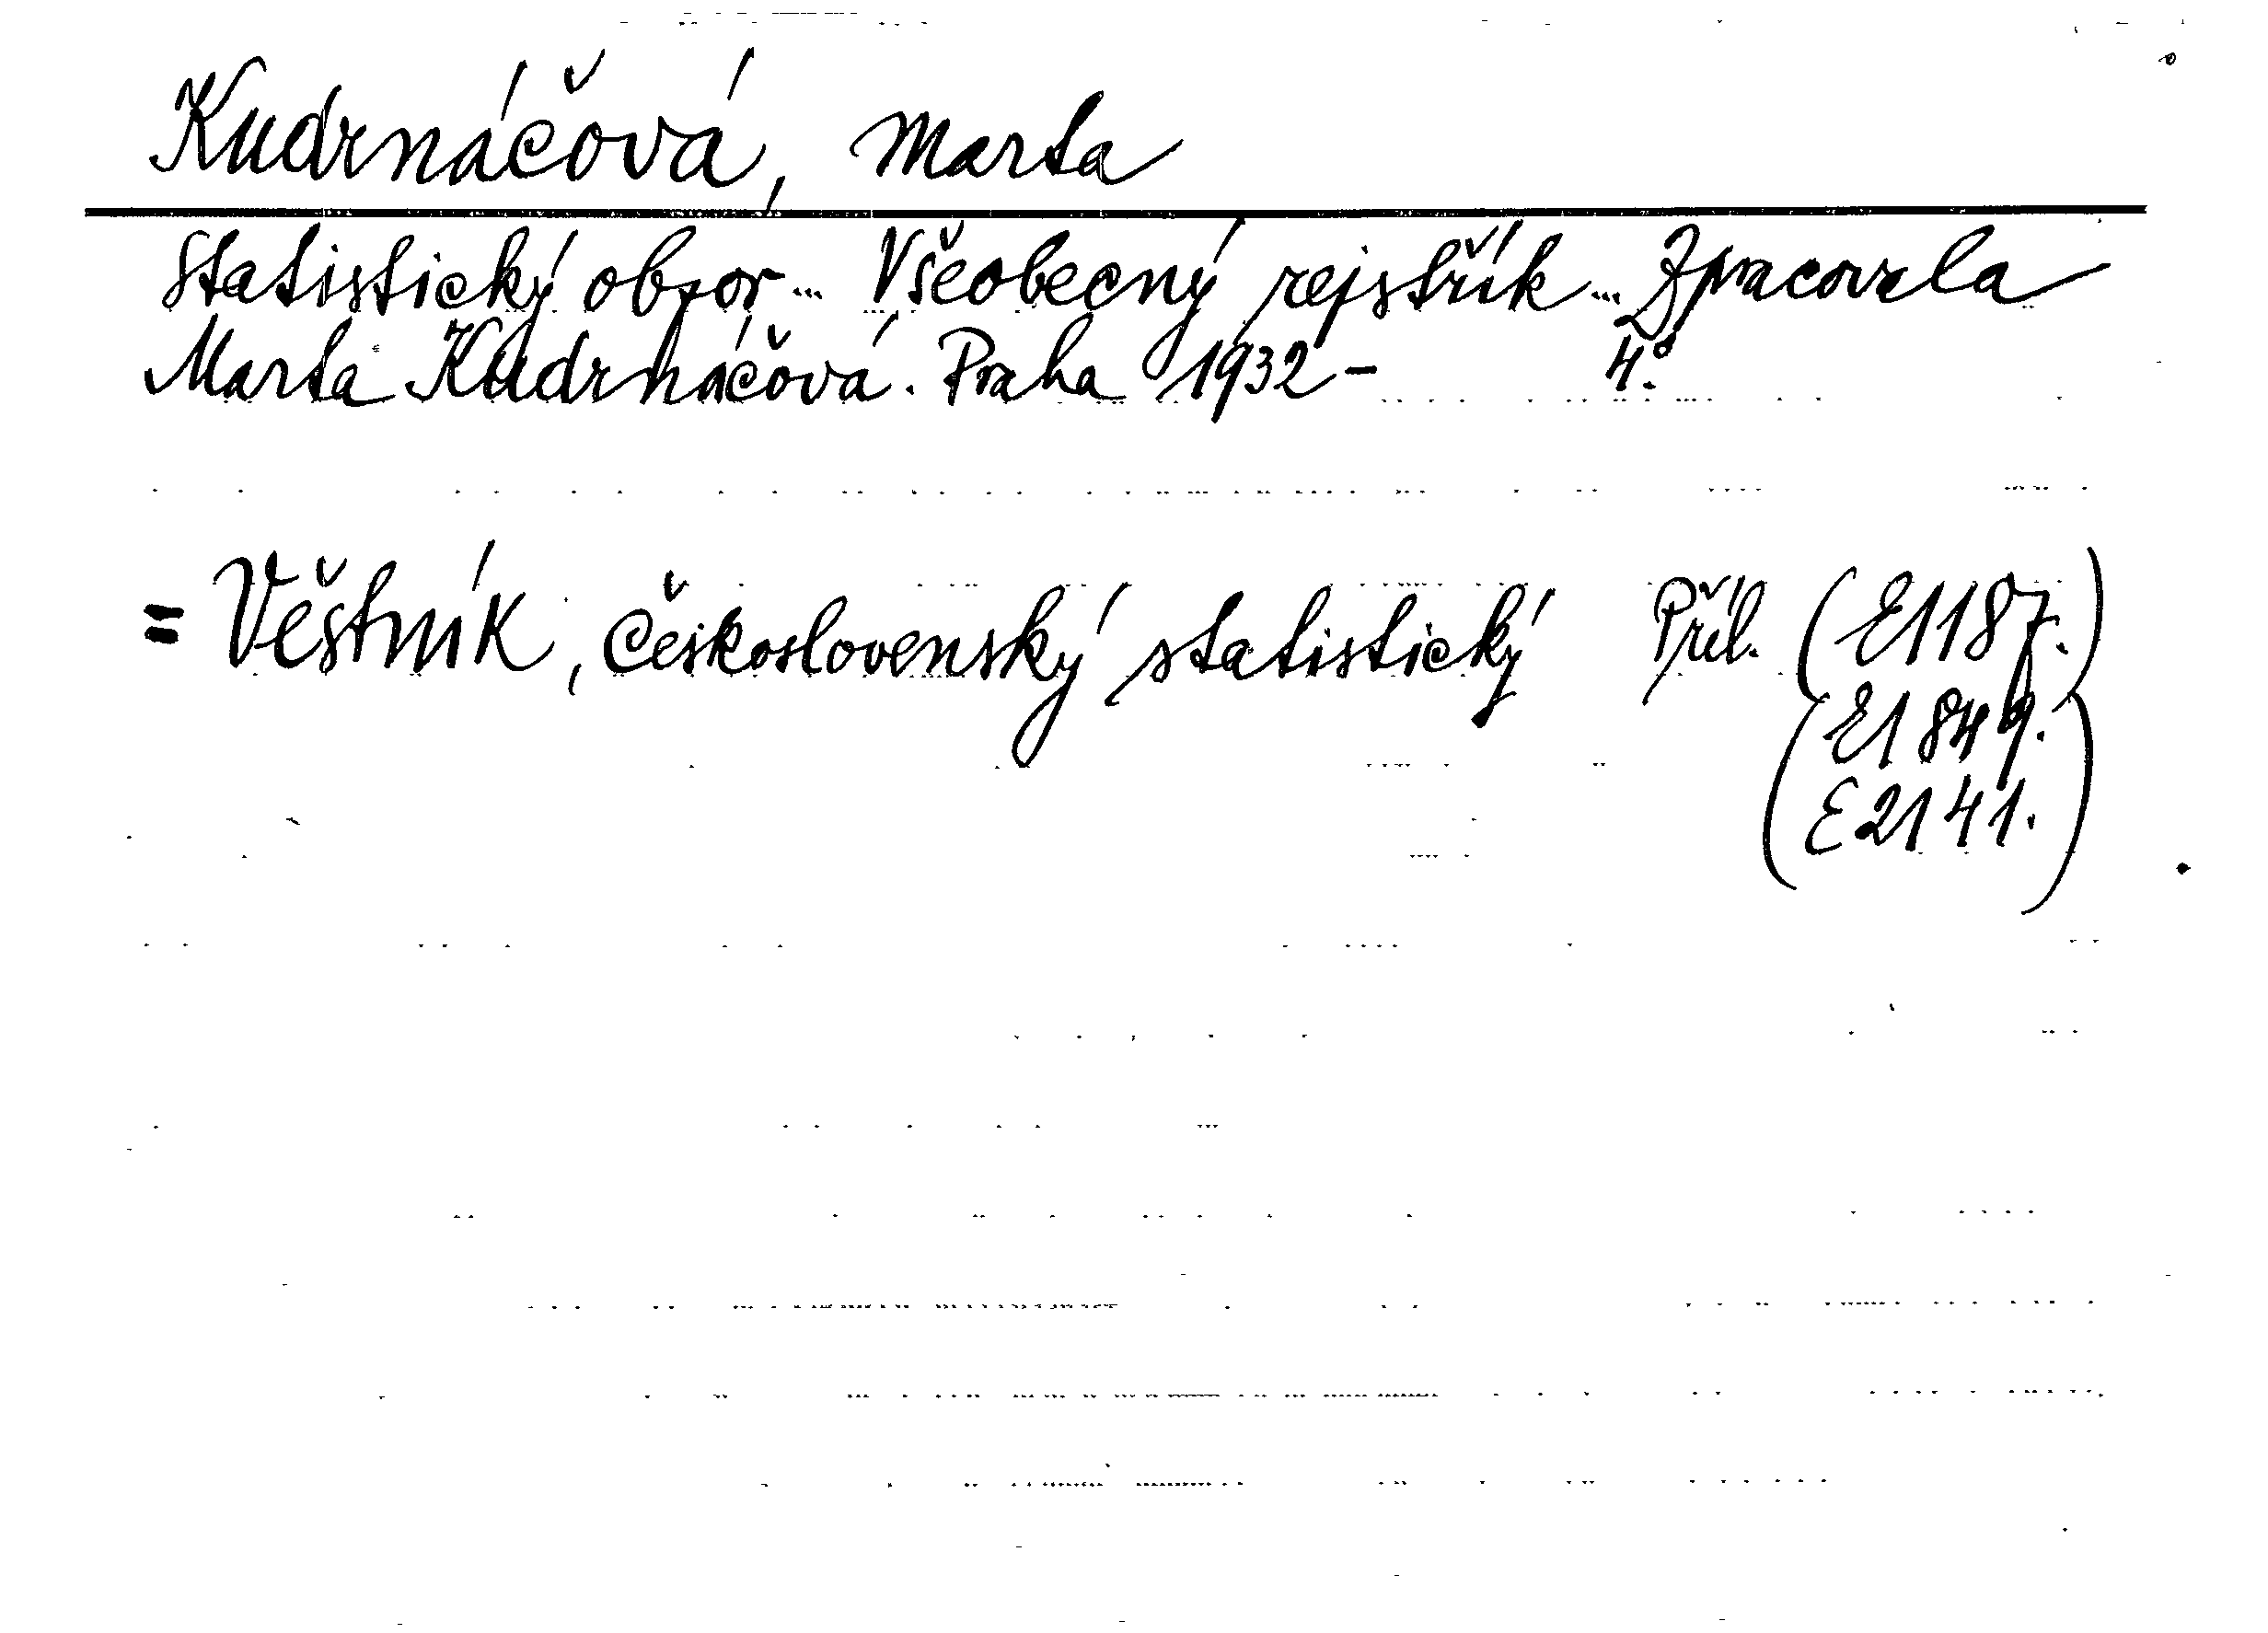 Kudrnáčová, Marta
Statistický obzor... Všeobecný rejstřík... Zpracovala
Marta Kudrnáčová. Praha 1932- 4°.
= Věstník, Československý statistický Příl. (E1187.)
(E1849.
E2141.)